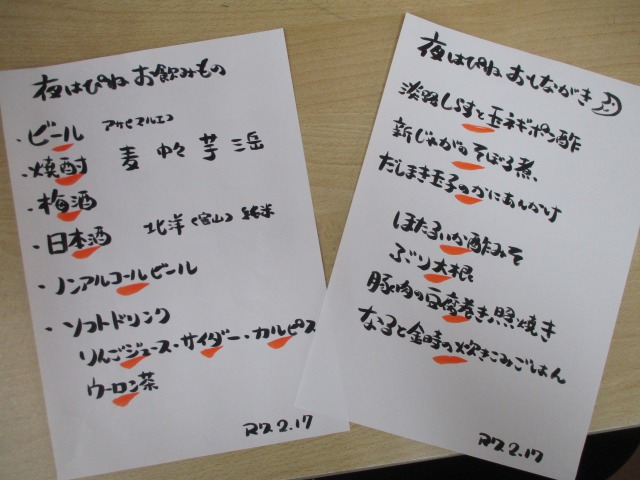 夜はぴね お飲みもの
・ビール アサヒマルエフ
・焼酎 麦 中々 芋 三岳
・梅酒
・日本酒 北洋(富山)純米
・ノンアルコールビール
・ソフトドリンク
りんごジュース・サイダー・カルピス
ウーロン茶
R7.2.17
夜はぴね おしながき
淡路しらすと玉ネギポン酢
新じゃがのそぼろ煮
だしまき玉子のかにあんかけ
ほたるいか酢みそ
ぶり大根
豚肉の豆腐巻き照焼き
なると金時の炊きこみごはん
R7.2.17